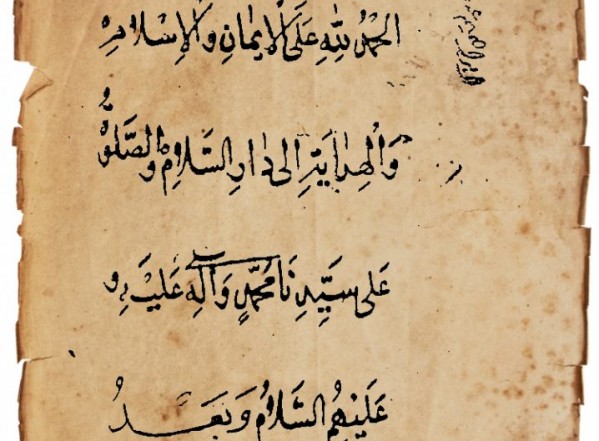 الحمد لله على الايمان والاسلام
والهداية الى دار السلام والصلوة
على سيدنا محمد وآله عليه و
عليهم السلام وبعد